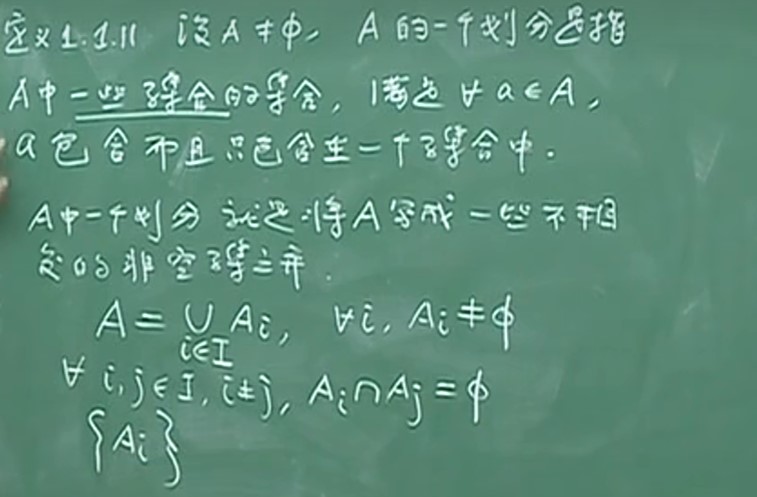 定义1.1.11 设A≠φ, A的一个划分是指
A中一些子集合的集合, 满足∀a∈A,
a包含而且只包含在一个子集合中.
A中一个划分 就是将A写成一些不相
交的非空子集之并.
A = ∪ Aᵢ, ∀i, Aᵢ≠φ
i∈I
∀ i,j∈I, i≠j, Aᵢ∩Aⱼ=φ
{Aᵢ}